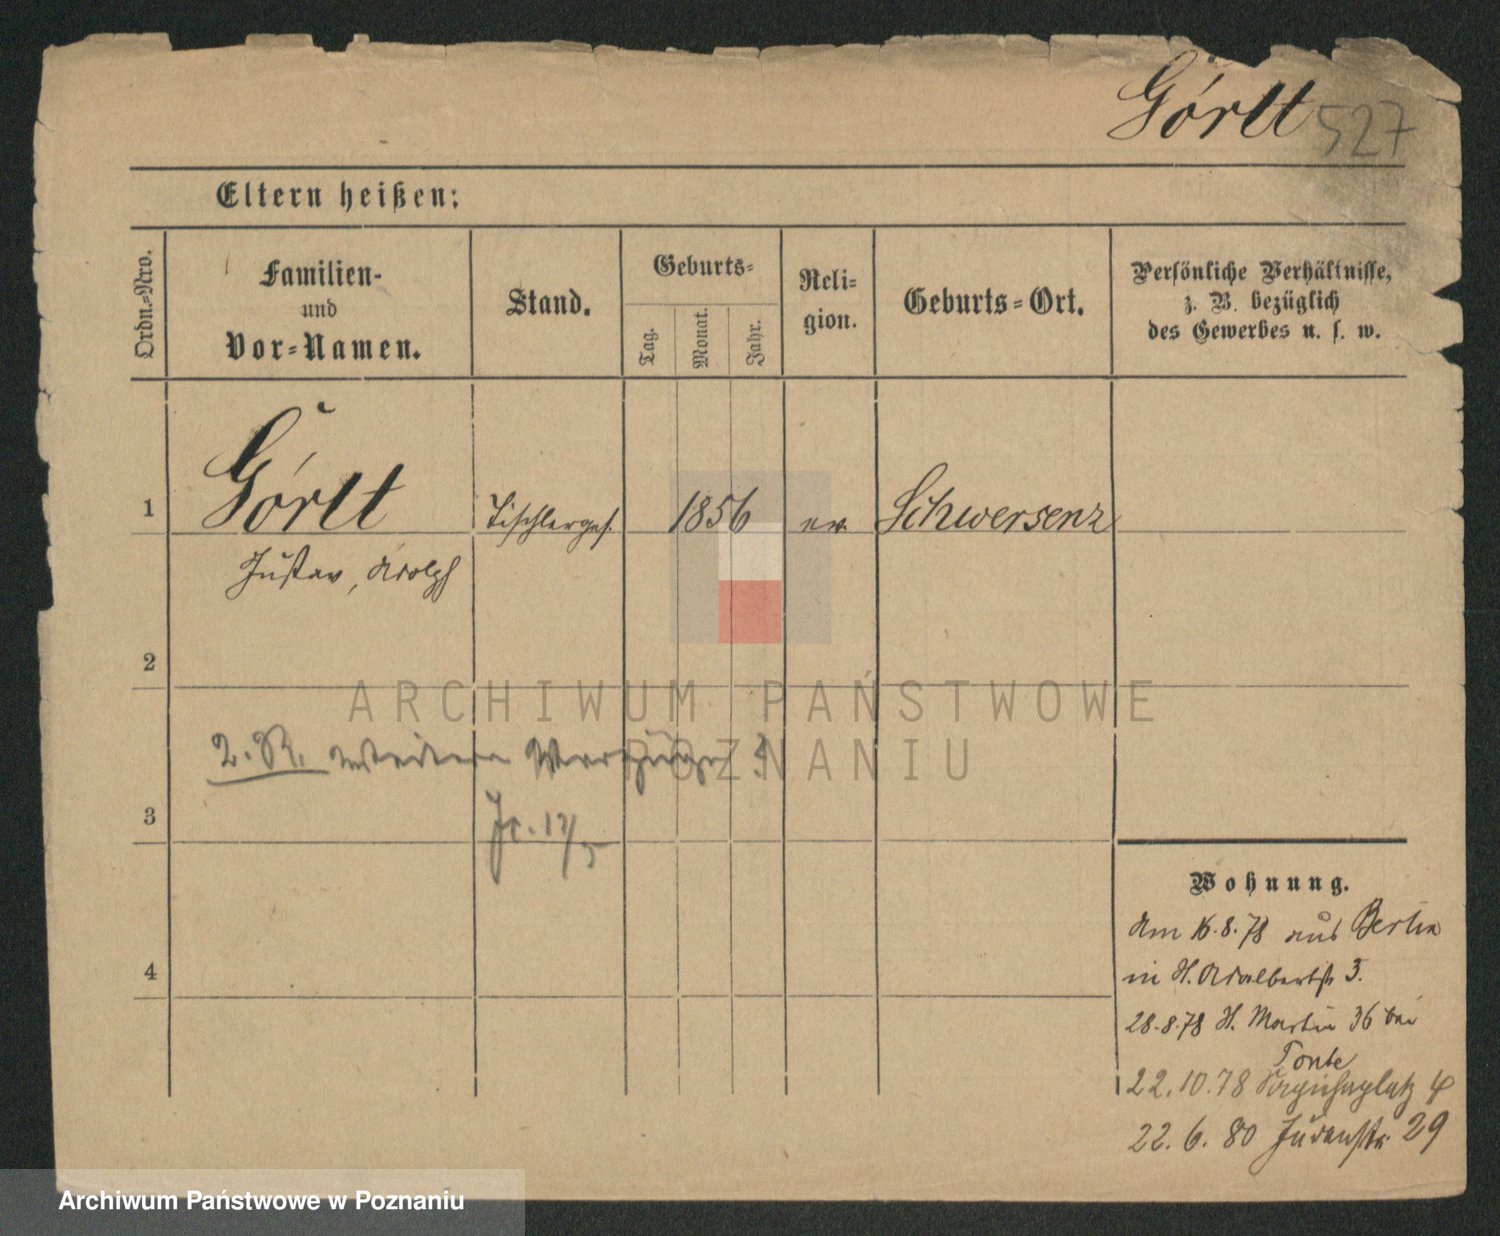 Görlt 527
Eltern heißen:
Ordn.=Nro.
Familien-
und
Vor=Namen.
Stand.
Geburts=
Tag.
Monat.
Jahr.
Reli=
gion.
Geburts=Ort.
Persönliche Verhältnisse,
z. B. bezüglich
des Gewerbes u. s. w.
1 Görlt Tischlerges. 1856 ev. Schwersenz
Gustav, Adolph
2
ARCHIWUM PAŃSTWOWE
W POZNANIU
2. R.
3
4
Wohnung.
Am 16.8.78 aus Berlin
in H. Adalbertstr 3.
28.8.78 St. Martin 36 bei
Tonte
22.10.78 4
22.6.80 Judenstr. 29
Archiwum Państwowe w Poznaniu